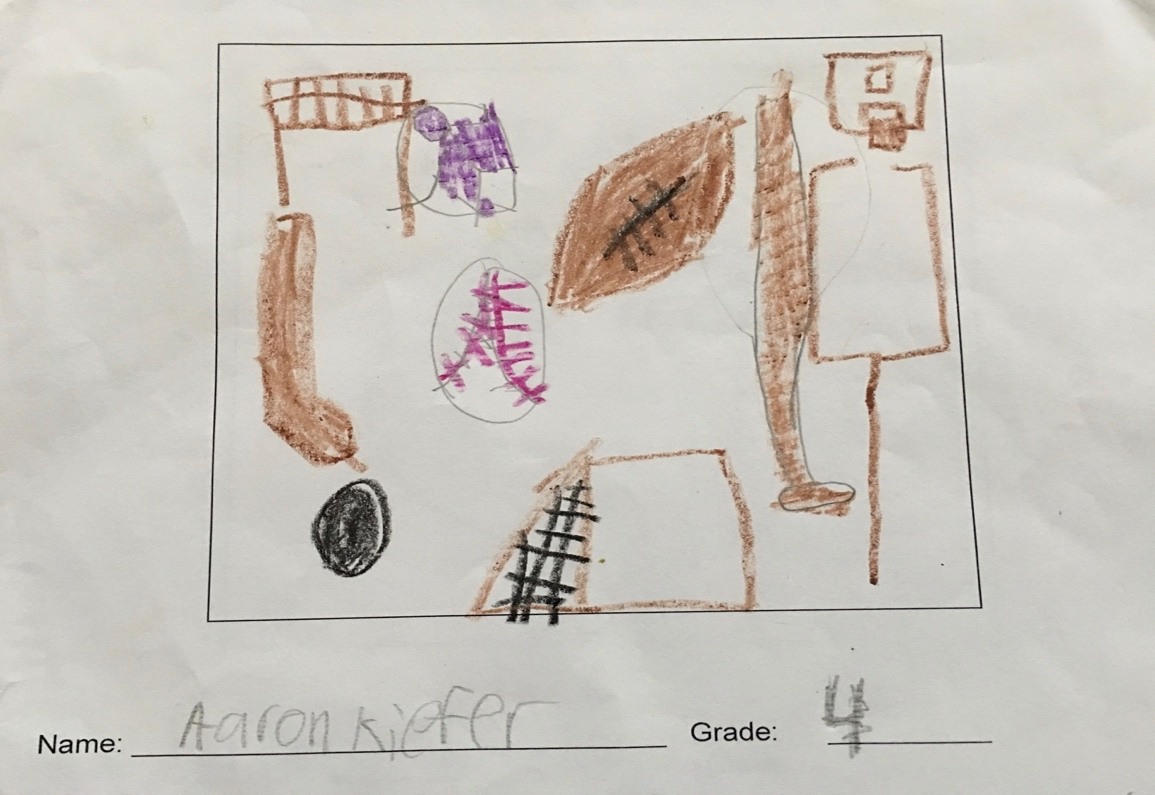 Name: Aaron Kiefer Grade: 4